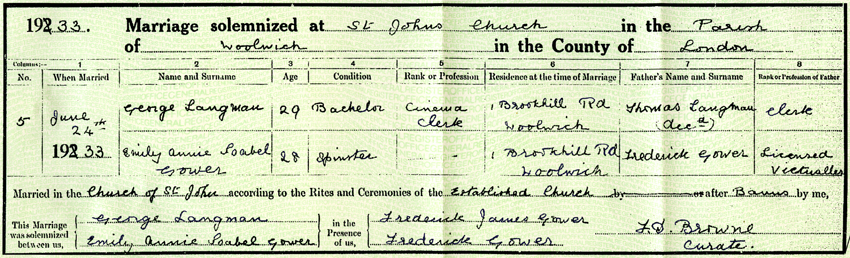 1933. Marriage solemnized at St Johns Church in the Parish
of Woolwich in the County of London
Columns:— 1 2 3 4 5 6 7 8
No. When Married Name and Surname Age Condition Rank or Profession Residence at the time of Marriage Father's Name and Surname Rank or Profession of Father
5 June 24th 1933 George Langman 29 Bachelor Cinema Clerk 1 Brookhill Rd Woolwich Thomas Langman (decd) Clerk
Emily Annie Isabel Gower 28 Spinster - 1 Brookhill Rd Woolwich Frederick Gower Licensed Victualler
Married in the Church of St John according to the Rites and Ceremonies of the Established Church by or after Banns by me,
This Marriage was solemnized between us, George Langman in the Presence of us, Frederick James Gower
Emily Annie Isabel Gower Frederick Gower
Browne
Curate.